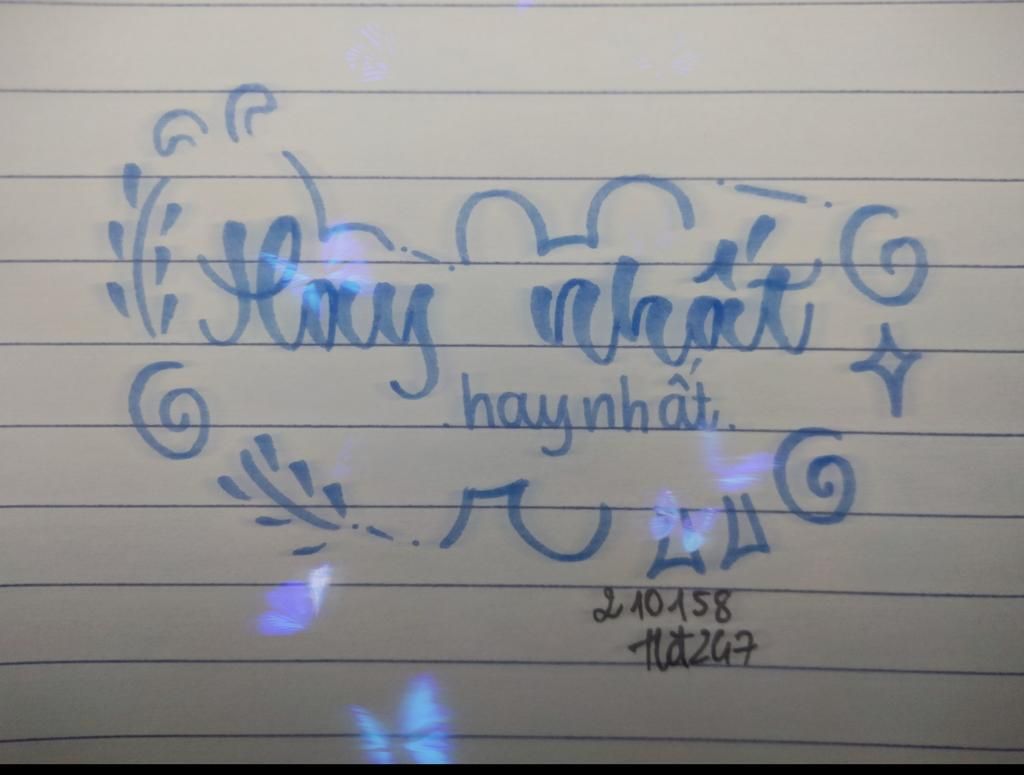 Hay nhất
haynhất.
210158
Hd2G7